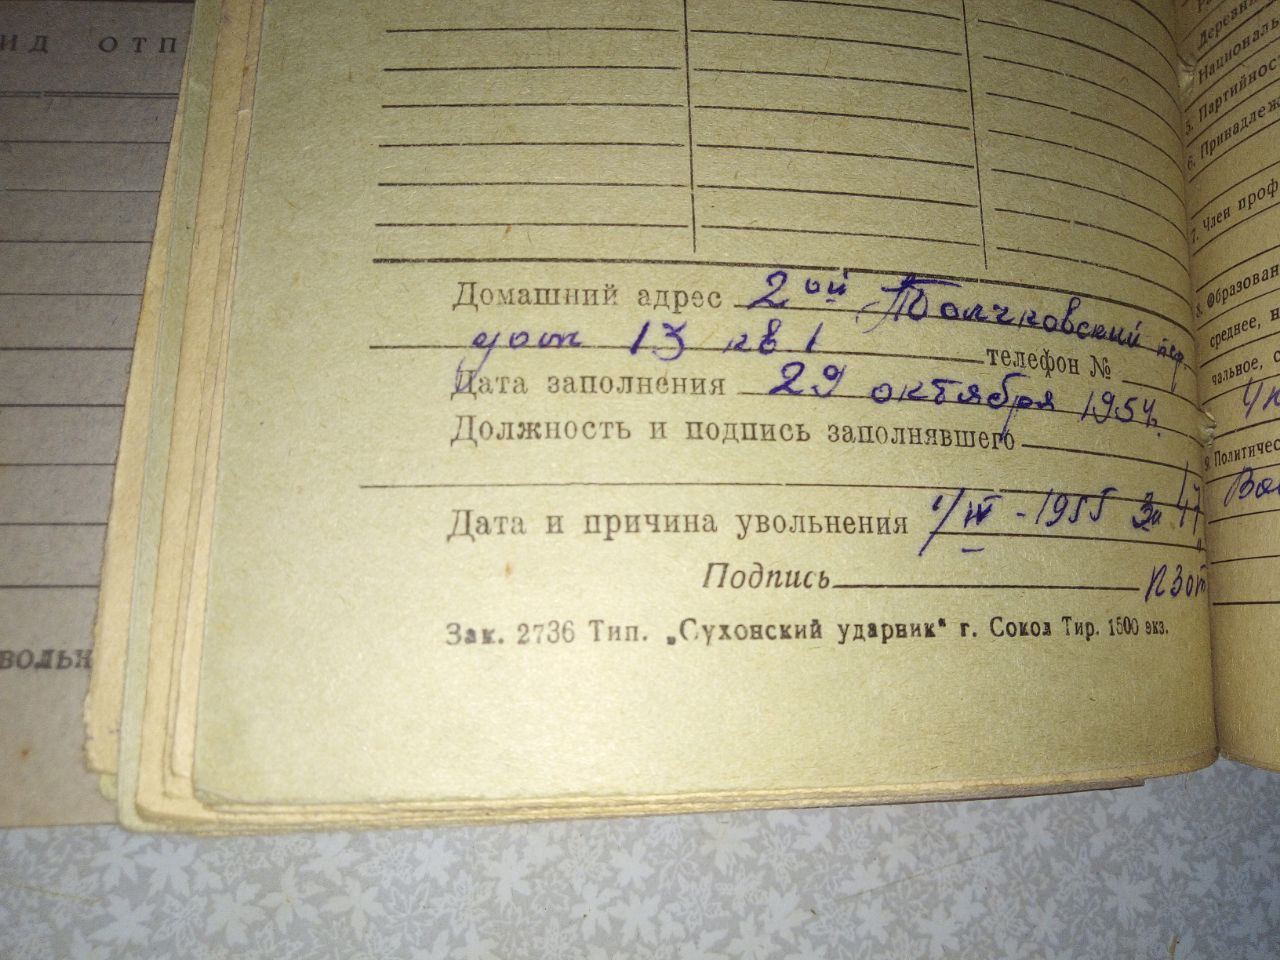 ИД ОТП
ВОЛЬН
Домашний адрес 2ой Толчковский пер.
дом 13 кв 1 телефон №
Дата заполнения 29 октября 1954.
Должность и подпись заполнявшего
Дата и причина увольнения 1/IV - 1955 47
Подпись КЗот
Зак. 2736 Тип. „Сухонский ударник“ г. Сокол Тир. 1500 экз.
Деревн
Националь
5. Партийност
6. Принадлеж
7. Член проф
8. Образован
среднее, н
чальное, с
9. Политичес